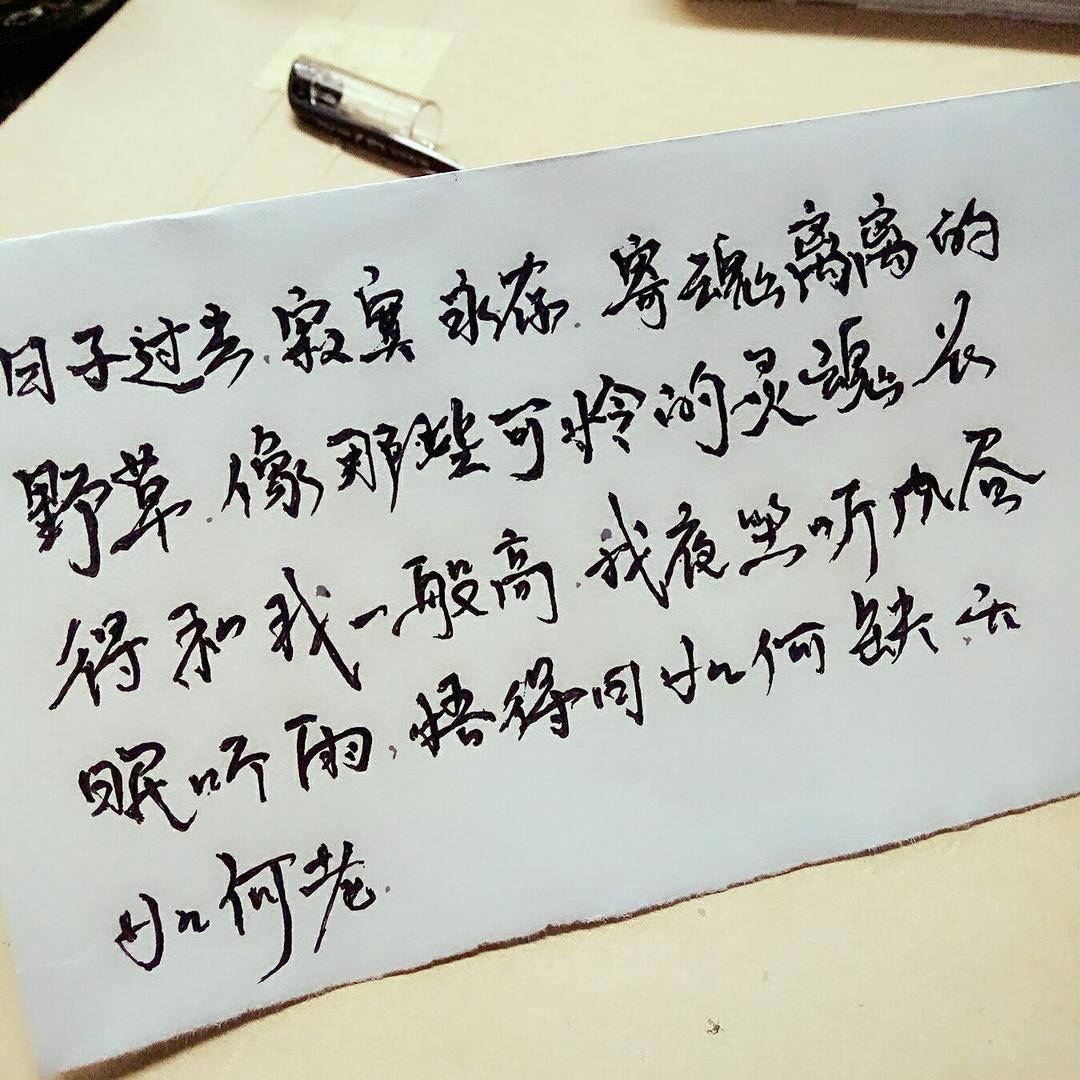 日子过去.寂寞永存.寄魂离离的
野草.像那些可怜的灵魂 长
得和我一般高.我夜坐听风昼
眠听雨.悟得月如何缺.天
如何老.